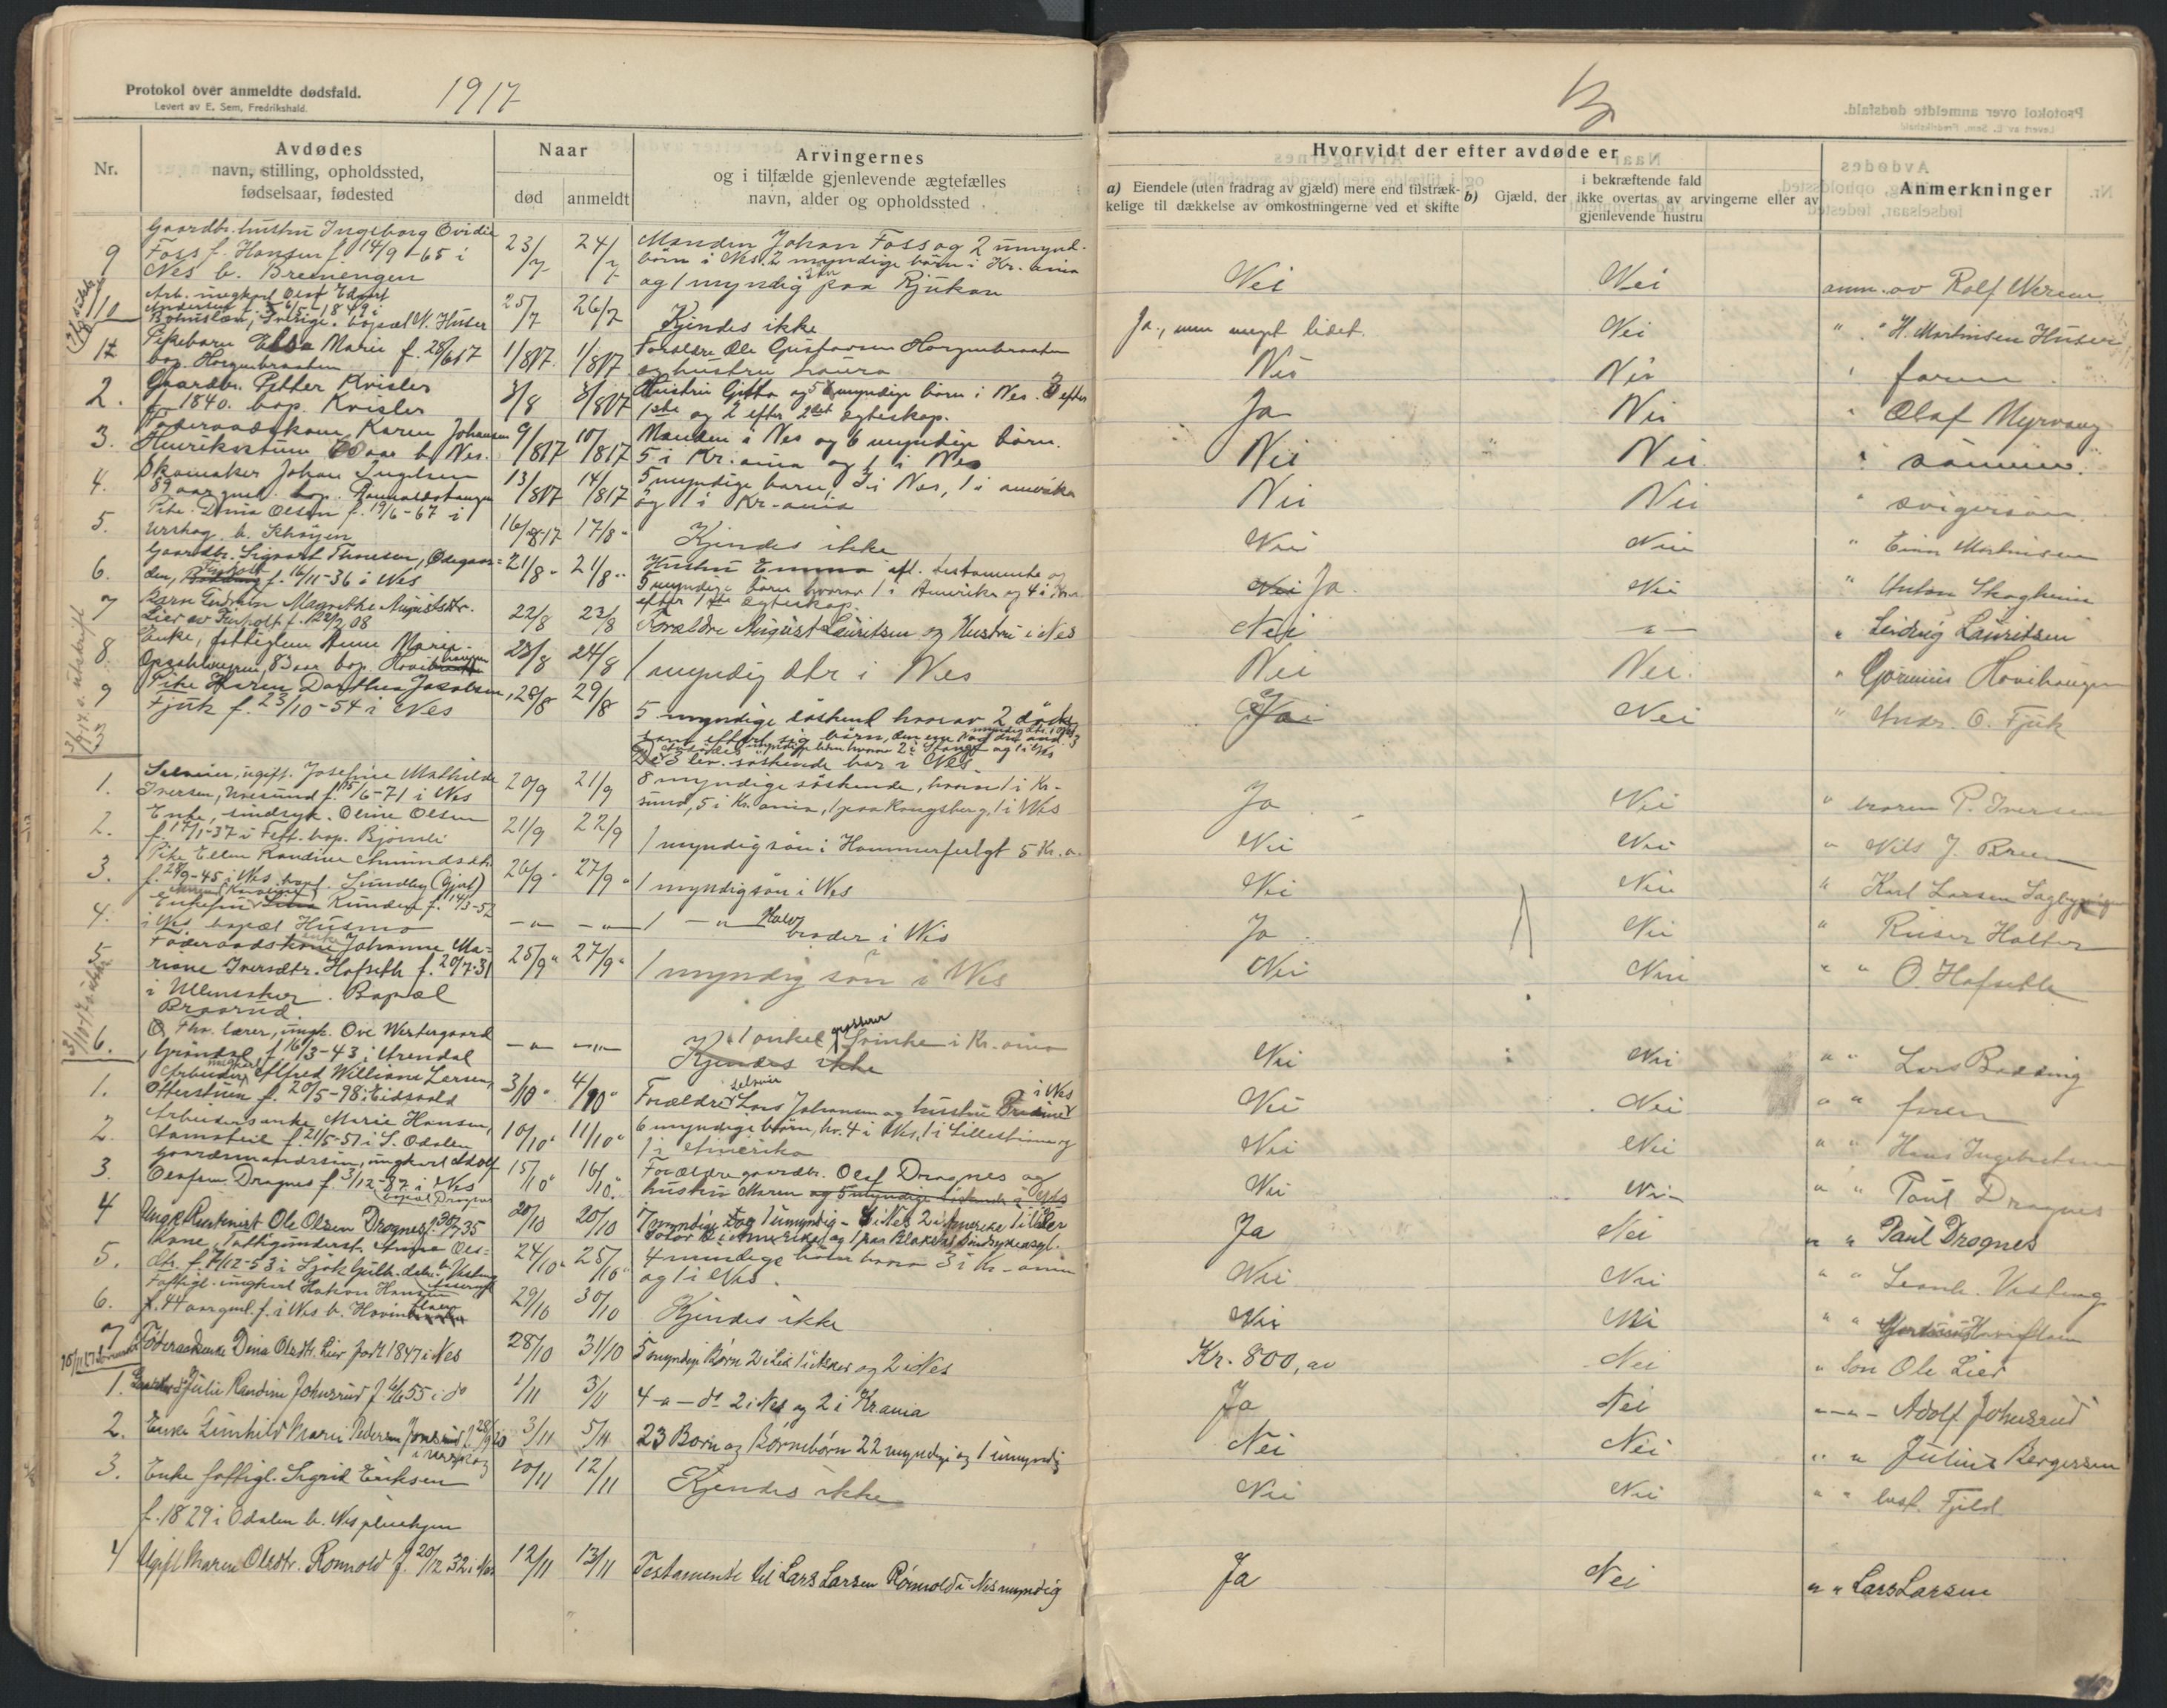 Protokol over anmeldte dødsfald.
Levert av E. Sem, Fredrikshald.
1917
Nr.
Avdødes
navn, stilling, opholdssted,
fødselsaar, fødested
Naar
død
anmeldt
Arvingernes
og i tilfælde gjenlevende ægtefælles
navn, alder og opholdssted
Hvorvidt der efter avdøde er
a) Eiendele (uten fradrag av gjæld) mere end tilstræk-
kelige til dækkelse av omkostningerne ved et skifte
b) Gjæld, der ikke overtas av arvingerne eller av
i bekræftende fald
gjenlevende hustru
Anmerkninger
9
Gaardbr. hustru Ingeborg Ovidie
Foss f. Hansen f. 14/9-65 i
Nes b. Bremengen
23/7 24/7
Manden Johan Foss og 2 umynd.
børn i Nes. 2 myndige børn i Kr.ania
og 1 myndig søn paa Rjukan
Nei Nei anm. av Rolf
10
Arb. ungkarl Olof Edvart
Bohuslæn, Sverige. bopæl N. Huser
25/7 26/7
Kjendes ikke
Ja, men meget lidet. Nei " " H. Martinsen Huser
1
Pikebarn Elsa Marie f. 28/6 17
bop. Horgenbraaten
1/8 17 1/8 17
Forældre Ole Gustavsen Horgenbraaten
og hustru Laura
Nei Nei " faren
2.
Gaardbr. Petter Kvisler
f. 1840. bop. Kvisler
3/8 3/8 17
Hustru Gitta og 5 myndige børn i Nes. 3 efter
1ste og 2 efter 2det egteskap.
Ja Nei " Olaf Myrvang
3.
Føderaadskone, Karen Johansen
Henrikstuen aar b. Nes.
9/8 17 10/8 17
Manden i Nes og 6 myndige børn.
5 i Kr.ania og 1 i Nes
Nei Nei " sønnen.
4.
Skomaker Johan Ingelsen
89 aar gml. bop.
13/8 17 14/8 17
5 myndige barn, 3 i Nes, 1 i amerika
og 1 i Kr-ania
Nei Nei " svigersøn.
5.
Pike Dina Olsen f. 19/6-67 i
Urskog b. Skøyen
16/8-17 17/8-
Kjendes ikke
Nei Nei " Einar Martinsen
6.
Gaardbr. Sigvart Thoresen, Ødegaar-
den, Finholt f. 16/11-36 i Nes
21/8- 21/8-
Hustru Emma efl. testamente og
5 myndige børn hvorav 1 i Amerika og 4 i Nes
efter 1ste egteskap.
Nei Ja Nei " Anton Skogheim
7
Barn Margrethe Augustsdtr.
Lier av Finholt f. 08
22/8 23/8
Forældre August Lauritsen og Hustru i Nes
Nei -"- " Ludvig Lauritsen
8.
Enke, fattiglem Anne Marie
83 aar bop. Hovihaugen
23/8 24/8
1 myndig dtr i Nes
Nei Nei. " Hovihaugen
9
Pike Karen Dorthea Jacobsen,
Fjuk f. 23/10-54 i Nes
28/8 29/8
5 myndige søskend hvorav 2 døde
De 3 lev. søskende bor i Nes
Ja Nei " Andr. O. Fjuk
1.
Selveier, ugift. Josefine Mathilde
Iversen, f. 15/6-71 i Nes
20/9 21/9
8 myndige søskende, hvorav 1 i Kr-
sund, 5 i Kr.ania, 1 paa Kongsberg, 1 i Nes
Ja Nei " broren P. Iversen
2.
Enke, sindsyk. Oline Olsen
f. 17/1-37 i Fett. bop. Bjørnli
21/9 22/9
1 myndig søn i Hammerfest
Nei Nei " Nils J. Breen
3.
Pike Ellen Randine Amundsdtr.
f. 28/9-45 i Nes bopl. Sundby
26/9- 27/9-
1 myndig søn i Nes
Nei Nei " Karl Larsen Sagbygning
4.
Enkefru Knudsen f. 14/3-52
i Nes. bopæl Husmo
-"- -"- 1 -"- Halvbroder i Nes
Ja Nei " Reiser Holter
5
Føderaadsenke Johanne Ma-
riane Iversdtr. Hofseth f. 20/7-31
i Ullensaker. Bopæl
Braarud.
25/9" 27/9"
1 myndig søn i Nes
Nei Nei " " O. Hofseth
6.
Fhv. lærer, ungk. Ove Westergaard
Grøndal, f. 16/3-43 i Arendal
-"- -"-
1 onkel grosserer Svinke i Kr.ania
Kjendes ikke
Nei Nei " " Lars Bødding
1.
Arbeider, Alfred William Larsen,
Otterstuen f. 20/5-98 i Eidsvold
3/10" 4/10"
Forældre selveier Lars Johansen og hustru i Nes
Nei Nei " " faren
2.
Arbeidersenke Marie Hansen,
f. 21/5-57 i S. Odalen
10/10" 11/10"
6 myndige børn, hv. 4 i Nes, 1 i Lillestrøm og
1 i Amerika
Nei Nei " " Hans Ingebretsen
3.
Gaardmandssøn, ungkarl Adolf
Olafsen Dragnes f. 3/12-97 i Nes
bopæl Dragnes
15/10" 16/10"
Forældre gaardbr. Olaf Dragnes og
hustru Maren og 5 umyndige søskende i Nes
Nei Nei " " Paul Dragnes
4
Ungk. Ole Olsen Drognes 30/7 35
20/10 20/10
7 myndige og 1 umyndig - i Nes 2 i Amerika
Ja Nei " " Paul Drognes
5.
Kone, fattigunderst. Ols-
dtr. f. 4/12-53 i
24/10" 25/10"
4 mundige børn hvorav 3 i Kr-ania
og 1 i Nes.
Nei Nei " "
6.
Fattigl. ungkarl Hakon Hansen
44 aar gml. f. i Nes b.
29/10 30/10
Kjendes ikke
Nei Nei " "
7
Føderaadsenke Dina Olsdtr. Lier født 1847 i Nes
28/10 31/10
5 myndige Børn 2 i Lier 1 i Asker og 2 i Nes
Kr. 800, av Nei " Søn Ole Lier
1.
Julie Randine Johnsrud f. 55 i do
1/11 3/11
4 -"- do 2 i Nes og 2 i Krania
Ja Nei -"- Adolf Johnsrud
2.
Enke Gunhild Marie Pedersen
3/11 5/11
23 Børn og Børnebørn 22 myndige og 1 umyndig
Nei Nei " " Julius Bergersen
3.
Enke fattigl. Sigrid Eriksen
f. 1829 i Odalen b. Nes pleiehjem
10/11 12/11
Kjendes ikke
Nei Nei " " best. Fjeld
4
Ugift Maren Olsdtr. Rømold f. 20/12 32 i Nes
12/11 13/11
Testamente til Lars Larsen Rømold i Nes myndig
Ja Nei " " Lars Larsen